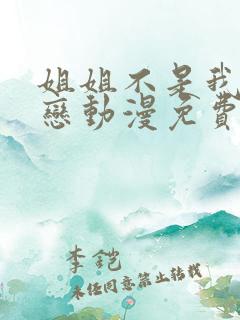 姐姐不是我
戀動漫免費
李鎧
未任同意禁止转载